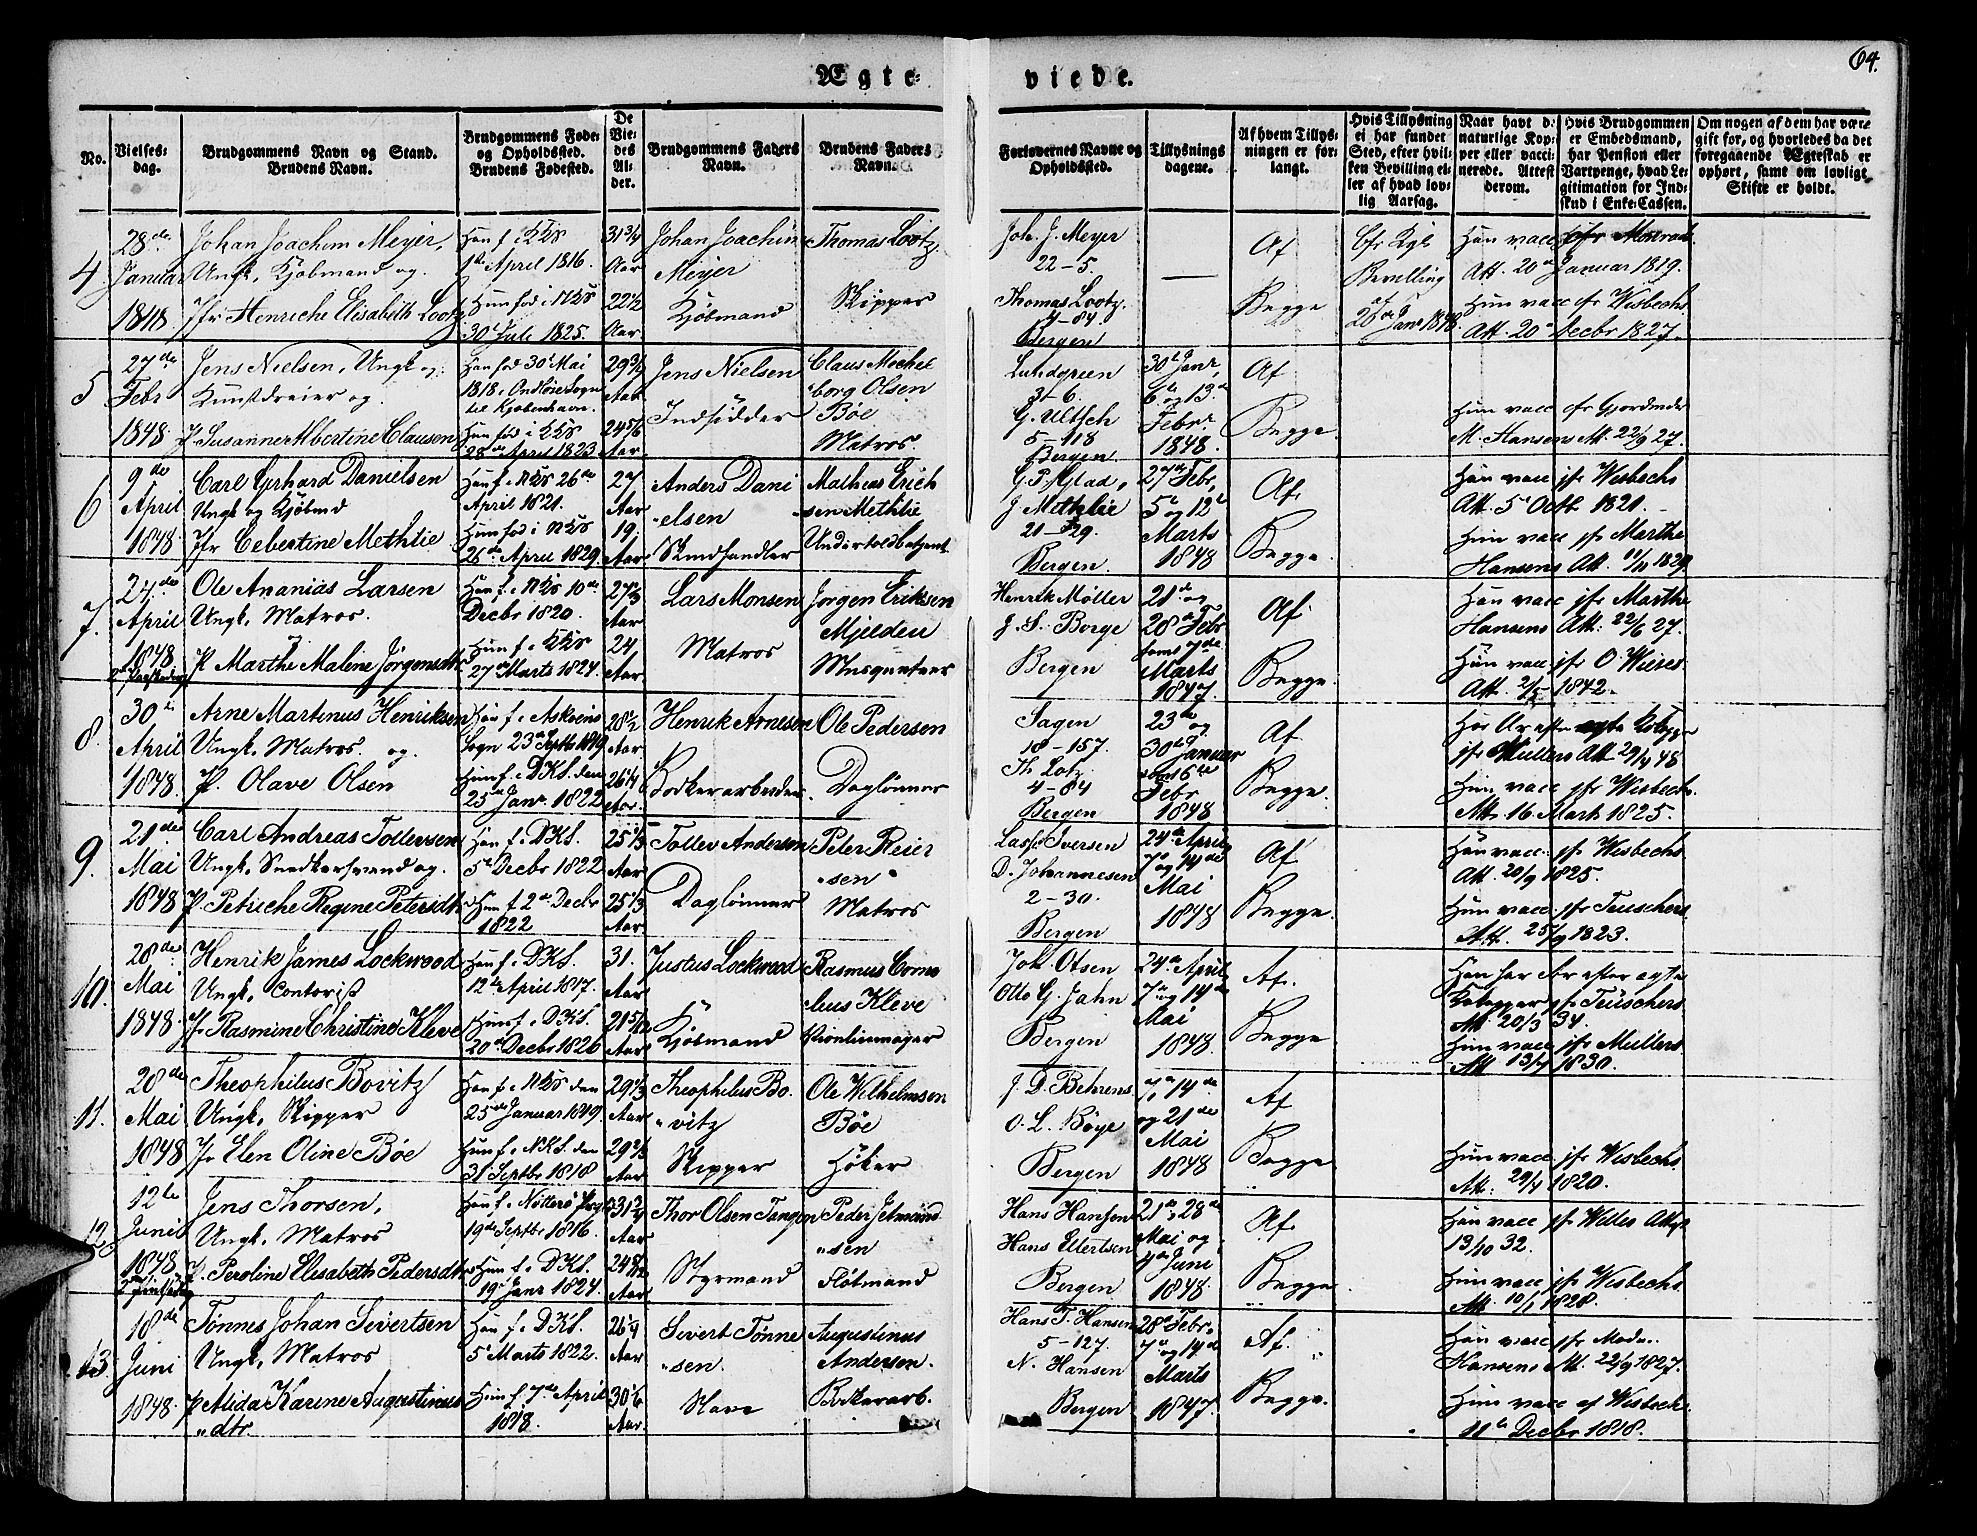 64.
Ægte-
viede.
No.
Vielses-
dag.
Brudgommens Navn og Stand.
Brudens Navn.
Brudgommens Føde-
og Opholdssted.
Brudens Fødested.
De
Vie-
des
Al-
der.
Brudgommens Faders
Navn.
Brudens Faders
Navn.
Forlovernes Navne og
Opholdssted.
Tillysnings
dagene.
Af hvem Tillys-
ningen er for-
langt.
Hvis Tillysning
ei har fundet
Sted, efter hvil-
ken Bevilling el-
ler af hvad lov-
lig Aarsag.
Naar havt d.
naturlige Kop-
per eller vacci-
nerede. Attest
derom.
Hvis Brudgommen
er Embedsmand,
har Pension eller
Vartpenge, hvad Le-
gitimation for Ind-
skud i Enke-Cassen.
Om nogen af dem har være
gift før, og hvorledes da det
foregaaende Ægteskab er
ophørt, samt om lovligt
Skifte er holdt.
4
28de
Januar
1848
Johan Joachim Meyer,
Ungk, Kjøbmand og
Jfr Henriche Elisabeth Lootz
Han f. i KKs
1te April 1816.
Hun fød i NKs
30 Juli 1825.
31 3/4
Aar
22 1/2
Aar
Johan Joachim
Meyer
Kjøbmand
Thomas Lootz
Skipper
Joh. J. Meyer
22-5.
Thomas Lootz
4-84.
Bergen
Af
Begge
Cfr Kgl
Bevilling
af
Han vacc
Att. 20de Januar 1819.
Hun vacc cfr Wisbechs
Att. 20de Decbr 1827.
5
27de
Febr
1848
Jens Nielsen, Ungk og
Kunstdreier og
P. Susanne Albertine Clausen
Han fød 30 Mai
1818 i Ondløse Sogn
til Kjøbenhavn.
Hun fød i KKs
28de April 1823
29 3/4
Aar
24 5/6
Aar
Jens Nielsen
Indsidder
Claus Mechel
borg Olsen
Bøe
Matros.
Lundgreen
3-6.
G. Ultsch
5-118
Bergen
30te Janr,
6te og 13de
Febr.
1848.
Af
Begge
Hun vacc cfr Gjordemdr
M. Hansens Att. 22/9 27.
6
9de
April
1848
Carl Gerhard Danielsen
Ungk og Kjøbmd
Jfr Cebertine Methlie
Han f. i NKs 26de
April 1821.
Hun fød i NKs
26de April 1829
27
Aar
19
Aar
Anders Dani
elsen
Skindhandler
Mathias Erich
sen Methlie
Undertoldbetjent
G. P. Glad,
J. Methlie
21-29.
Bergen.
27de Febr,
5te og 12te
Marts
1848
Af
Begge
Han vacc jfr Wisbechs
Att. 5 Octb. 1821.
Hun vacc jfr Marthe
Hansens Att. 11/11 1829
7.
24de
April
1848
Ole Ananias Larsen
Ungk. Matros.
P Marthe Maline Jørgensdtr
Han f. i NKs 10de
Decbr 1820.
Hun f. i KKs
27de Marts 1824.
27 1/3
Aar
24
Aar
Lars Monsen
Matros
Jørgen Eriksen
Mjelden
Musqueteer
Henrik Møller
J. S. Borge
Bergen
21de og
28de Febr
Marts
1847
Af
Begge
Han vacc jfr Marthe
Hansens Att. 22/6 27.
Hun vacc jfr O. Wieses
Att. 2/5 1842.
8
30te
April
1848.
Arne Martinus Henriksen
Ungk. Matros. og
P. Olave Olsen
Han f. i Askøens
Sogn 23de Septb 1819
Hun f. i DKS. den
25de Janr. 1822
28 1/2
Aar
26 1/4
Aar.
Henrik Arnesen
Bødkerarbeider
Ole Pedersen
Daglønner
Sagen
18-157.
Th. Lotz
4-84
Bergen
23de og
30te Januar
samt 6te
Febr
1848
Af
Begge
Har Ar efter ægte Kopper
jfr Mullers Att 29/4 48.
Hun vacc jfr Wisbechs
Att. 16 Marts 1825.
9.
21de
Mai
1848
Carl Andreas Tollevsen
Ungk. Snedkersvend og
P. Petriche Regine Petersdtr
Han f. i DKS.
5te Decbr 1822
Hun f. 2de Decbr
1822
25 1/3
Aar
25 1/3
Aar
Tollev Andersen
Daglønner
Peter Reier
sen
Matros
Lasse Iversen
D. Johannesen
2-30.
Bergen
24de April
7de og 14de
Mai
1848
Af
Begge
Han vacc. jfr Wisbechs
Att. 20/9 1825.
Hun vacc. jfr Teuschers
Att. 25/9 1823.
10.
28de
Mai
1848
Henrik James Lockwood
Ungk. Contorist
Jfr Rasmine Christine Kleve
Han f. i DKS.
12te April 1817.
Hun f. i DKS.
20de Decbr 1826
31.
Aar
21 5/12
Aar
Justus Lockwood
Kjøbmand
Rasmus Corne
lius Kleve
Violinmager
Joh. Olsen
Otto G. Jahn
Bergen
24de April
7de og 14de
Mai
1848
Af.
Begge
Han har Ar efter ægte
Kopper jfr Teuschers
Att 20/3 34.
Hun vacc jfr Mullers
Att 13/4 1830.
11.
28de
Mai
1848
Theophilus Bovitz
Ungk. Skipper
Jfr Elen Oline Bøe
Han f. i NKs den
25de Januar 1819.
Hun f. i NKS. den
3te Septbr 1818
29 1/3
Aar
29 2/3
Aar
Theophilus Bo
vitz
Skipper
Ole Wilhelmsen
Bøe
Høker
J. D. Behrens
O. L. Bøye
Bergen
7de, 14de
og 21de
Mai
1848
Af
Begge
Hun vacc jfr Wisbechs
Att: 29/4 1820.
12
12te
Juni
1848
2den Pintsedag
Jens Thorsen,
Ungk. Matros
P. Peroline Elisabeth Pedersdtr
Han f. i Nøtterø Prgj
19de Septbr 1816.
Hun f. i DKS.
19 Janr 1824.
31 3/4
Aar
24 5/12
Aar
Thor Olsen Tangen
Styrmand
Peder Jetmund
sen
Fløtmand
Hans Hansen
Hans Ellertsen
Bergen
21de, 28de
Mai og
4de Juni
1848
Af.
Begge
Han vacc jfr Welles Attst
13/10 32.
Hun vacc jfr Wisbechs
Att. 10/1 1828.
13
18de
Juni
1848.
Tønnes Johan Sivertsen
Ungk. Matros
P. Alida Karine Augustinus
dtr
Han f. i DKS.
5 Marts 1822.
Hun f. 7de April
1818.
26 1/4
Aar
30 1/6
Aar.
Sivert Tønne
sen.
Slave
Augustinus
Andersen.
Bødkerarb.
Hans T. Hansen
5-127.
N. Hansen
Bergen
28de Febr,
7de og 14de
Marts
1847
Af.
Begge.
Han vacc jfr Madm.
Hansens Att. 22/9 1827.
Hun vacc af Wisbech
11te Decbr 1818.